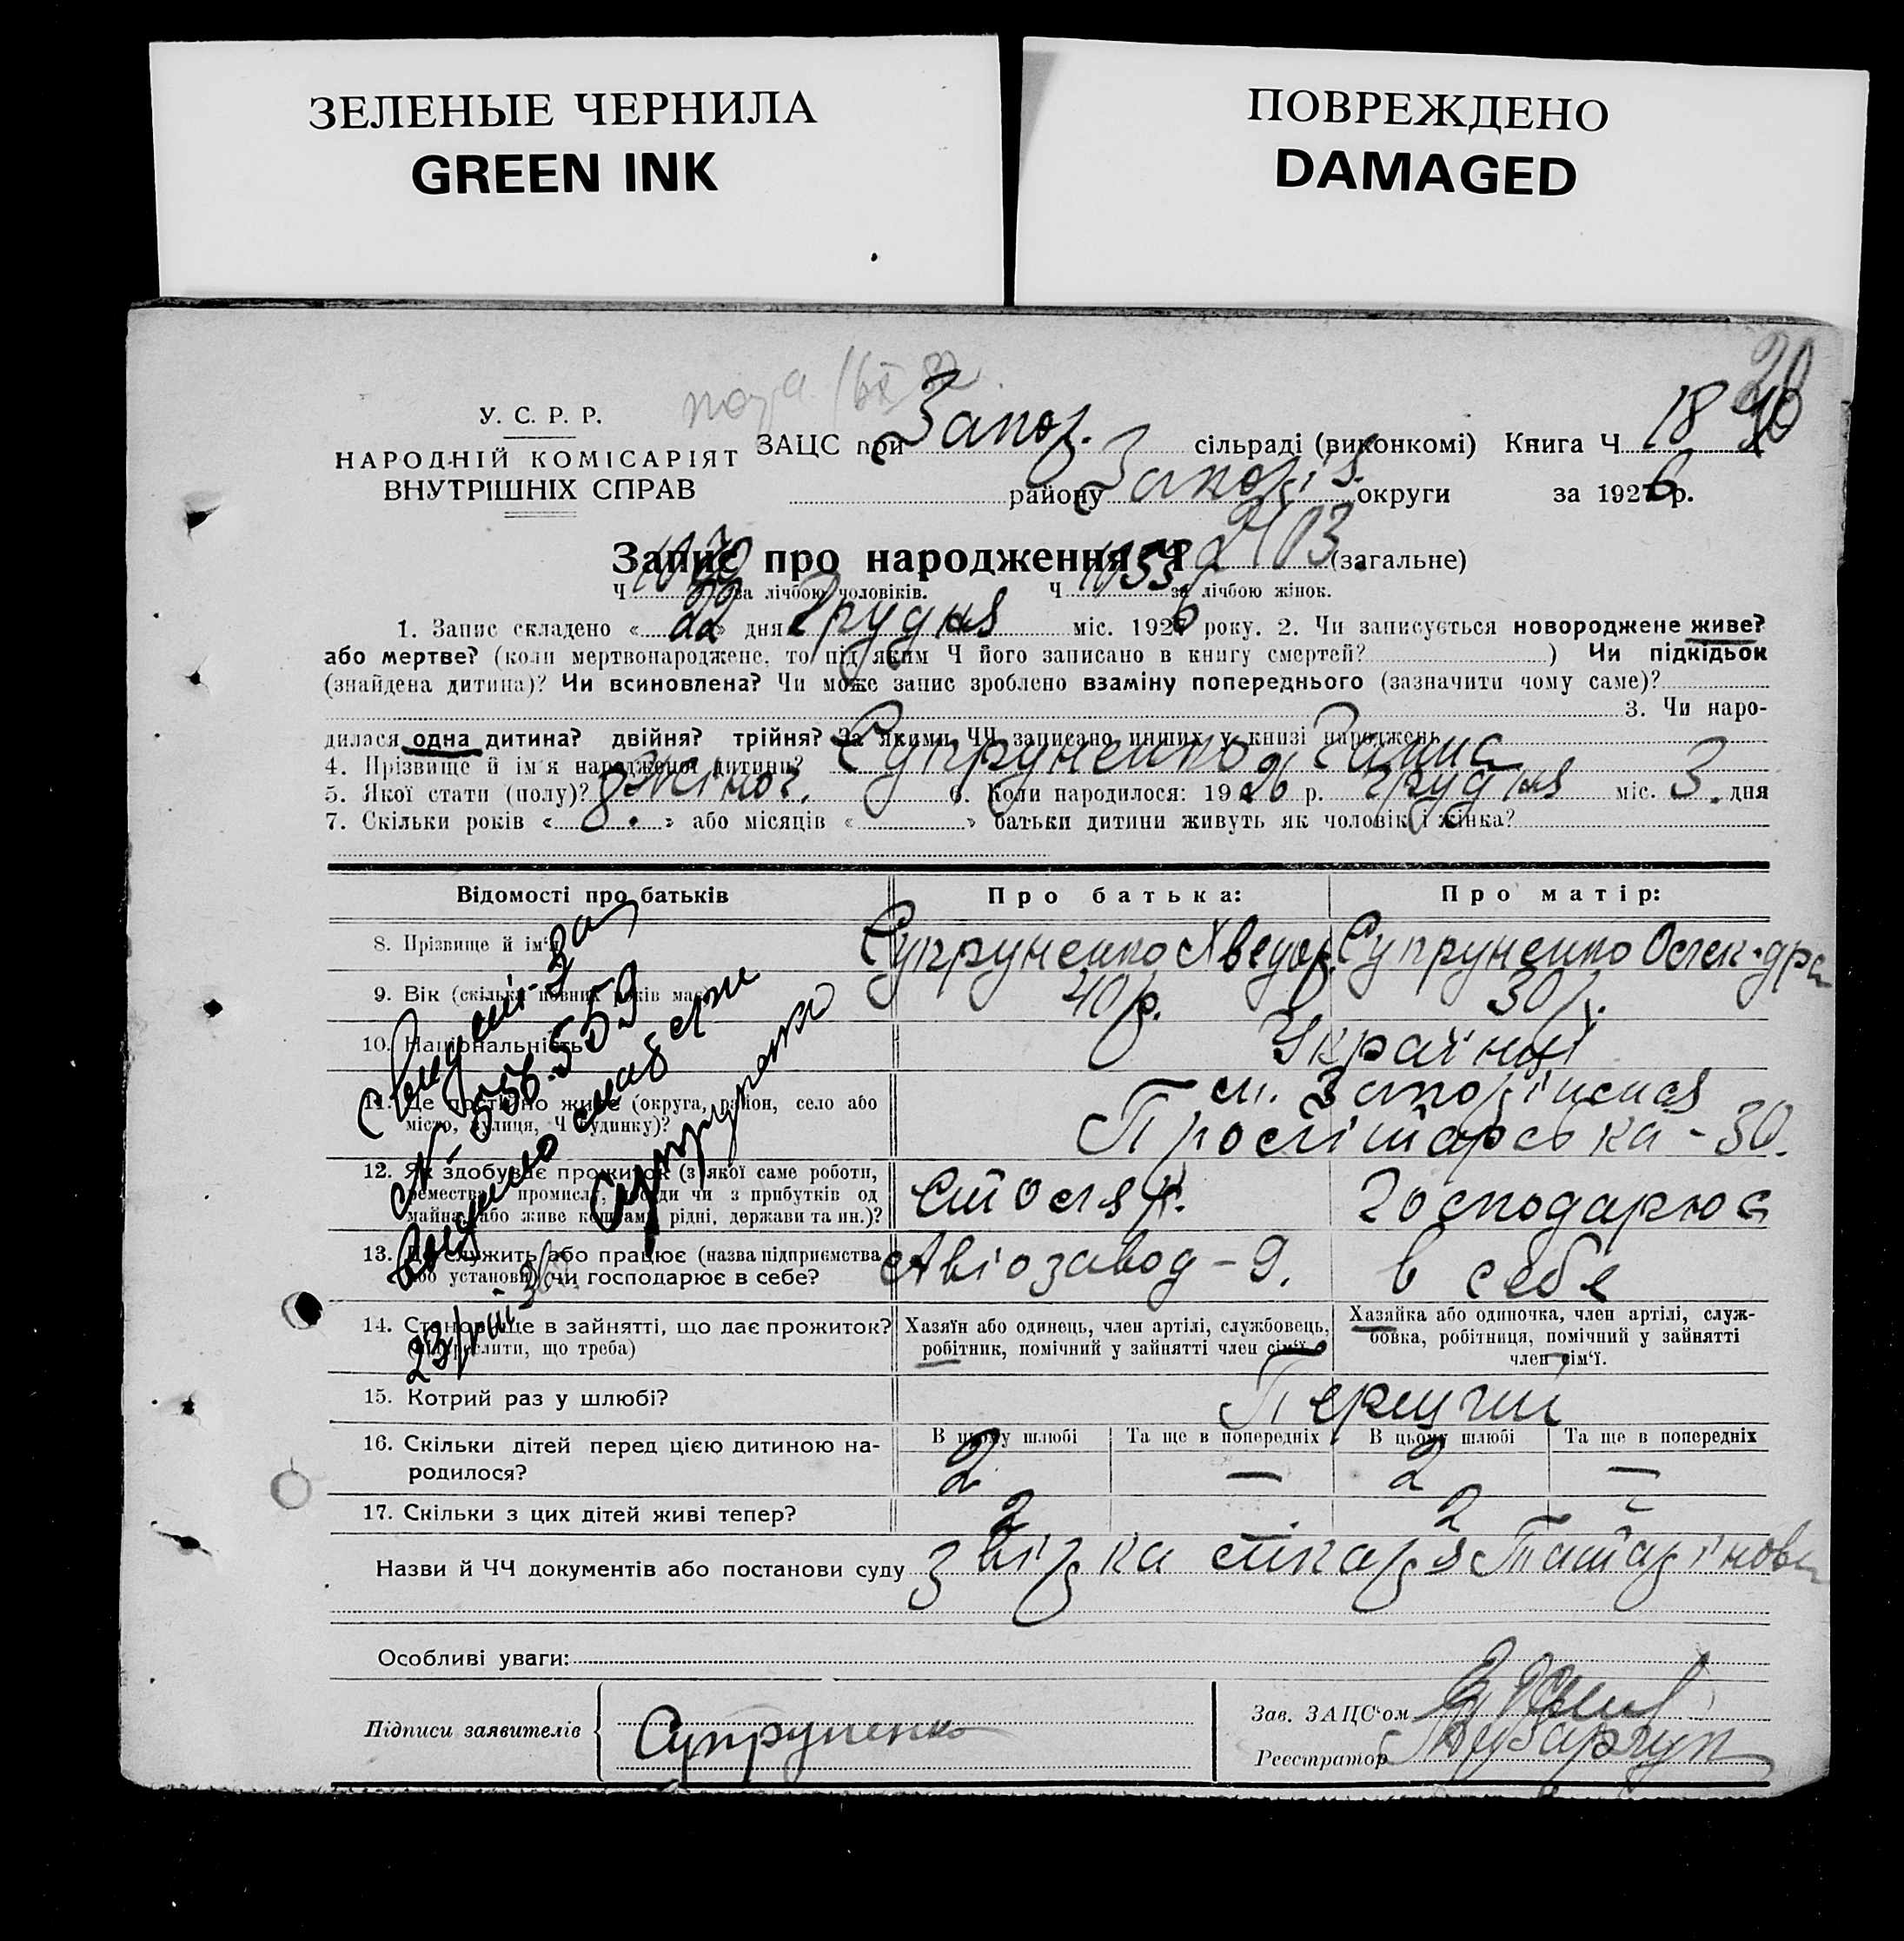 ЗЕЛЕНЫЕ ЧЕРНИЛА
GREEN INK
ПОВРЕЖДЕНО
DAMAGED
У. С. Р. Р.
НАРОДНІЙ КОМІСАРІЯТ
ВНУТРІШНІХ СПРАВ
ЗАЦС при Запор. сільраді (виконкомі) Книга Ч 18
району Запоріз. округи за 1926 р.
Запис про народження Ч 2103 (загальне)
Ч за лічбою чоловіків. Ч 1055 за лічбою жінок.
1. Запис складено « 22 » дня Грудня міс. 1926 року. 2. Чи записується новороджене живе?
або мертве? (коли мертвонароджене, то під яким Ч його записано в книгу смертей? ) Чи підкідьок
(знайдена дитина)? Чи всиновлена? Чи може запис зроблено взаміну попереднього (зазначити чому саме)?
3. Чи наро-
дилася одна дитина? двійня? трійня? За якими ЧЧ записано инших у книзі народжень
4. Прізвище й ім'я народженої дитини? Супруненко
5. Якої стати (полу)? жіноч. 6. Коли народилося: 1926 р. грудня міс. 3. дня
7. Скільки років « 8. » або місяців « » батьки дитини живуть як чоловік і жінка?
Відомості про батьків
Про батька:
Про матір:
8. Прізвище й ім'я
Супруненко Хведор
Супруненко Олек-дра
9. Вік (скільки повних років має)
40 р.
30 р.
10. Національність
Українці
11. Де постійно живе (округа, район, село або
місто, вулиця, Ч будинку)?
м. Запоріжжя
Пролітарська - 30.
12. Як здобуває прожиток (з якої саме роботи,
ремества, промислу, посади чи з прибутків од
майна, або живе коштами рідні, держави та ин.)?
Столяр.
Господарює
13. Де служить або працює (назва підприємства
або установи) чи господарює в себе?
Авіозавод - 9.
в себе
14. Становище в зайнятті, що дає прожиток?
(підкреслити, що треба)
Хазяїн або одинець, член артілі, службовець,
робітник, помічний у зайнятті член сім'ї.
Хазяйка або одиночка, член артілі, служ-
бовка, робітниця, помічний у зайнятті
член сім'ї.
15. Котрий раз у шлюбі?
Перший
16. Скільки дітей перед цією дитиною на-
родилося?
В цьому шлюбі
Та ще в попередніх
В цьому шлюбі
Та ще в попередніх
2 — 2 —
17. Скільки з цих дітей живі тепер?
2 2
Назви й ЧЧ документів або постанови суду
звізка лікаря Татарінова
Особливі уваги:
Підписи заявителів
Супруненко
Зав. ЗАЦС'ом
Реєстратор